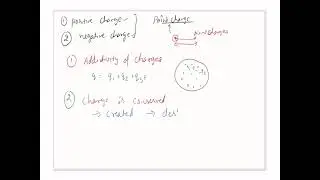 ① positive charge
② negative charge
Point charge
q
① Additivity of charges
q = q₁+q₂+q₃+
② Charge is conserved
→ created → des